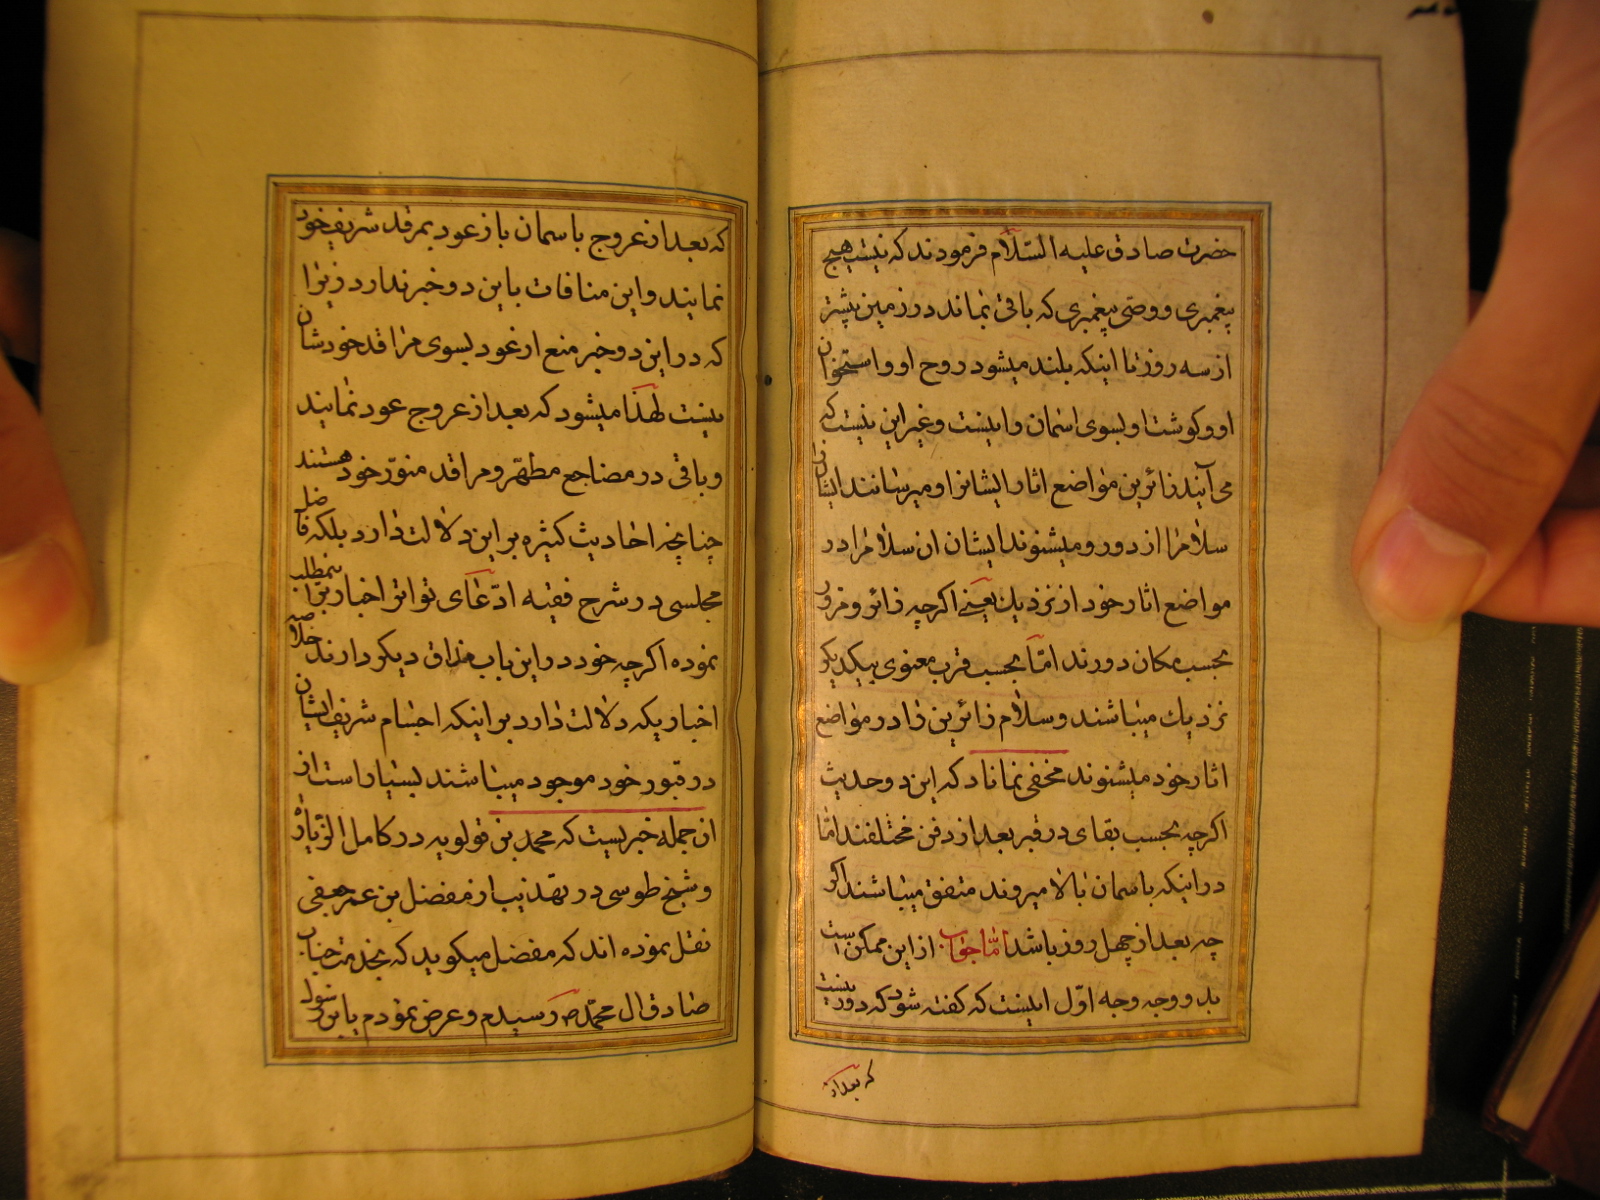 حضرت صادق علیه السّلام فرمودند که نیست هیچ
پیغمبری و وصی پیغمبری که باقی نماند در زمین بیشتر
از سه روز تا اینکه بلند میشود روح او و استخوان
او و کوشت او بسوی اسمان و اینست و غیر این نیست که
می آیند زائرین مواضع اثار ایشانرا و میرسانند ایشان
سلام را از دور و میشنوند ایشان ان سلام را در
مواضع اثار خود از نزدیك یعنی اکرچه زائر و مزور
بحسب مکان دورند امّا بحسب قرب معنوی بیکدیکر
نزدیك میباشند و سلام زائرین را در مواضع
اثار خود میشنوند مخفی نماناد که این دو حدیث
اکرچه بحسب بقای در قبر بعد از دفن مختلفند امّا
در اینکه باسمان بالا میروند متفق میباشند اکر
چه بعد از چهل روز باشد امّا جواب از این ممکن است
بدو وجه وجه اوّل اینست که کفته شود که دور نیست
که بعد از
که بعد از عروج باسمان باز عود بمرقد شریف خود
نمایند و این منافات باین دو خبر ندارد زیرا
که در این دو خبر منع از عود بسوی مراقد خودشان
نیست لهذا میشود که بعد از عروج عود نمایند
و باقی در مضاجع مطهّر و مراقد منوّر خود هستند
چنانچه احادیث کثیره بر این دلالت دارد بلکه فاضل
مجلسی در شرح فقیه ادّعای تواتر اخبار بر اینمطلب
نموده اکرچه خود در این باب مذاق دیکر دارند خلاصه
اخباریکه دلالت دارد بر اینکه اجسام شریف ایشان
در قبور خود موجود میباشند بسیار است از
ان جمله خبریست که محمد بن قولویه در کامل الزّیاره
و شیخ طوسی در تهذیب از مفضل بن عمر جعفی
نقل نموده اند که مفضل میکوید که بخدمت جناب
صادق ال محمّد ص رسیدم و عرض نمودم یابن رسول